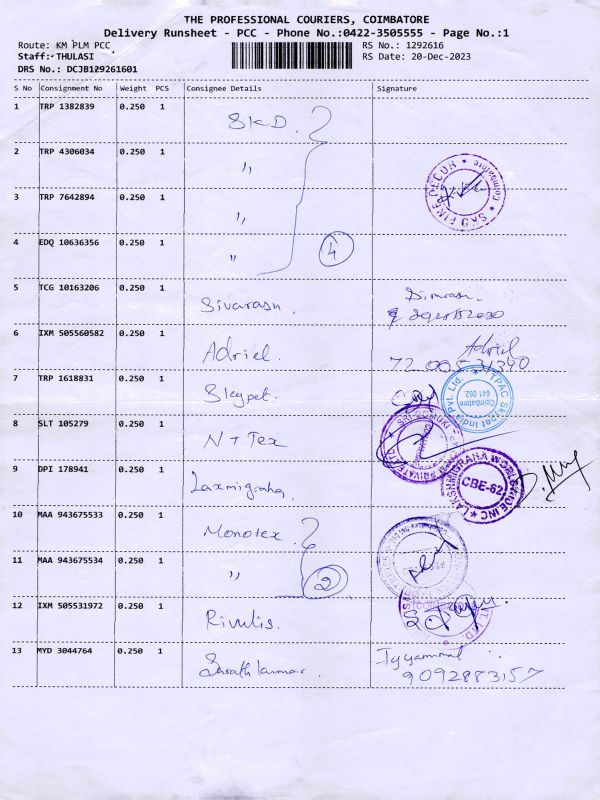 THE PROFESSIONAL COURIERS, COIMBATORE
Delivery Runsheet - PCC - Phone No.:0422-3505555 - Page No.:1
Route: KM PLM PCC
RS No.: 1292616
Staff: THULASI
RS Date: 20-Dec-2023
DRS No.: DCJB129261601
S No Consignment No Weight PCS Consignee Details Signature
1 TRP 1382839 0.250 1 SKD.
2 TRP 4306034 0.250 1 "
SKD FINE DECOR * Coimbatore *
3 TRP 7642894 0.250 1 "
4 EDQ 10636356 0.250 1 " 4
5 TCG 10163206 0.250 1 Sivarasn.
6 IXM 505560582 0.250 1 Adriel. Adriel
7 TRP 1618831 0.250 1 Skypet.
TPAC Skypet India Pvt. Ltd. Coimbatore 641 062.
8 SLT 105279 0.250 1 N+Tex
9 DPI 178941 0.250 1 Laxmigraha.
LAKSHMIGRAHA WORLDWIDE INC * CBE-62
10 MAA 943675533 0.250 1 Monotex.
11 MAA 943675534 0.250 1 " 2
12 IXM 505531972 0.250 1 Rivulis.
13 MYD 3044764 0.250 1 Sarathkumar. Iyyammal
9092883157